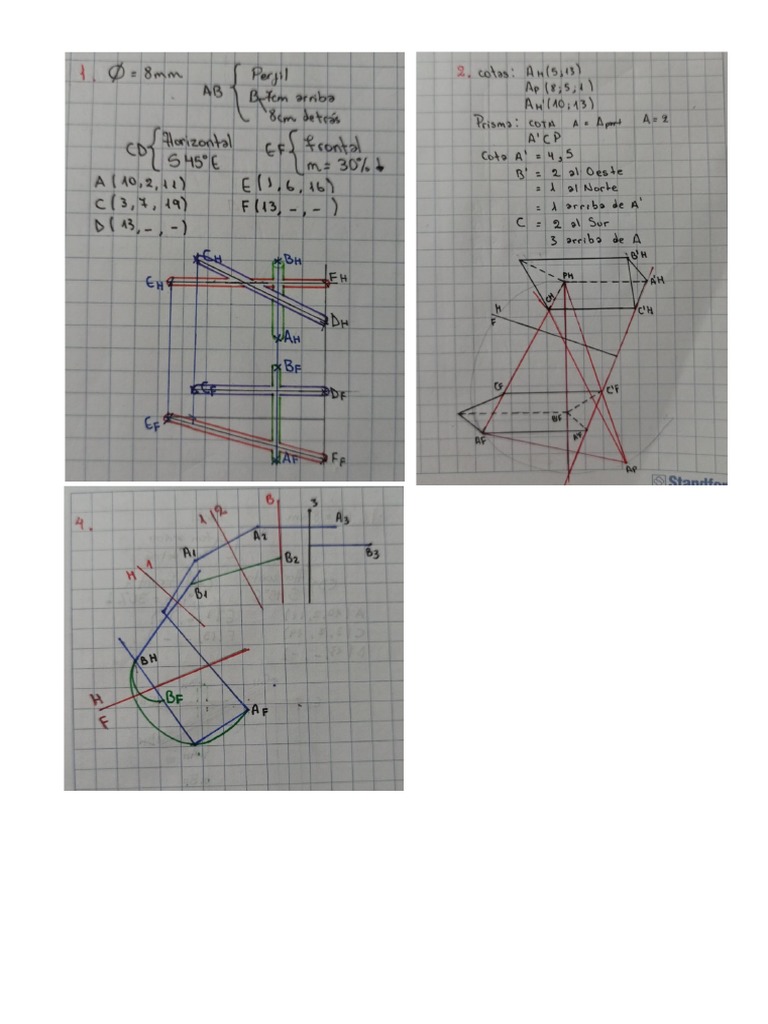 1. Ø = 8mm
AB { Perfil
B 7cm arriba
8cm detrás
CD { Horizontal
S 45° E
EF { frontal
m = 30% ↓
A (10, 2, 11)
E (1, 6, 16)
C (3, 7, 19)
F (13, -, -)
D (13, -, -)
CH
BH
EH
FH
DH
AH
BF
CF
DF
EF
AF
FF
2. cotas: AH (5,13)
AP (8,5,1)
AH' (10,13)
Prisma: COTA A = A A=2
A'CP
Cota A' = 4,5
B' = 2 al Oeste
= 1 al Norte
= 1 arriba de A'
C = 2 al Sur
3 arriba de A
B'H
PH
A'H
CH
C'H
H
F
CF
C'F
B'F
AF
A'F
AP
Standfor
4.
1 2
B
3
A3
A2
A1
B3
B2
H 1
B1
BH
H
F
BF
AF